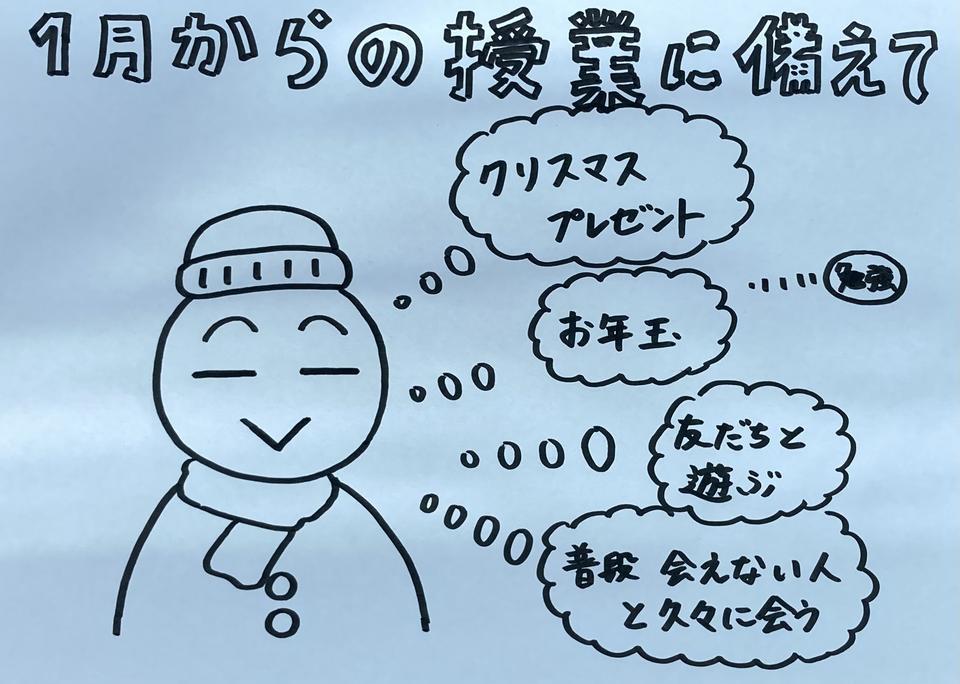 1月からの授業に備えて
クリスマス
プレゼント
勉強
お年玉
友だちと
遊ぶ
普段 会えない人
と久々に会う